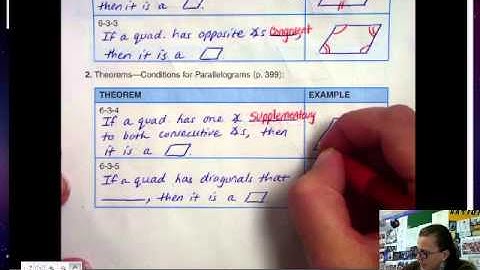 then it is a ▱.
6-3-3
If a quad. has opposite ∡s Congruent
then it is a ▱.
2. Theorems—Conditions for Parallelograms (p. 399):
THEOREM EXAMPLE
6-3-4
If a quad. has one ∡ Supplementary
to both consecutive ∡s, then
it is a ▱
6-3-5
If a quad has diagonals that
______, then it is a ▱